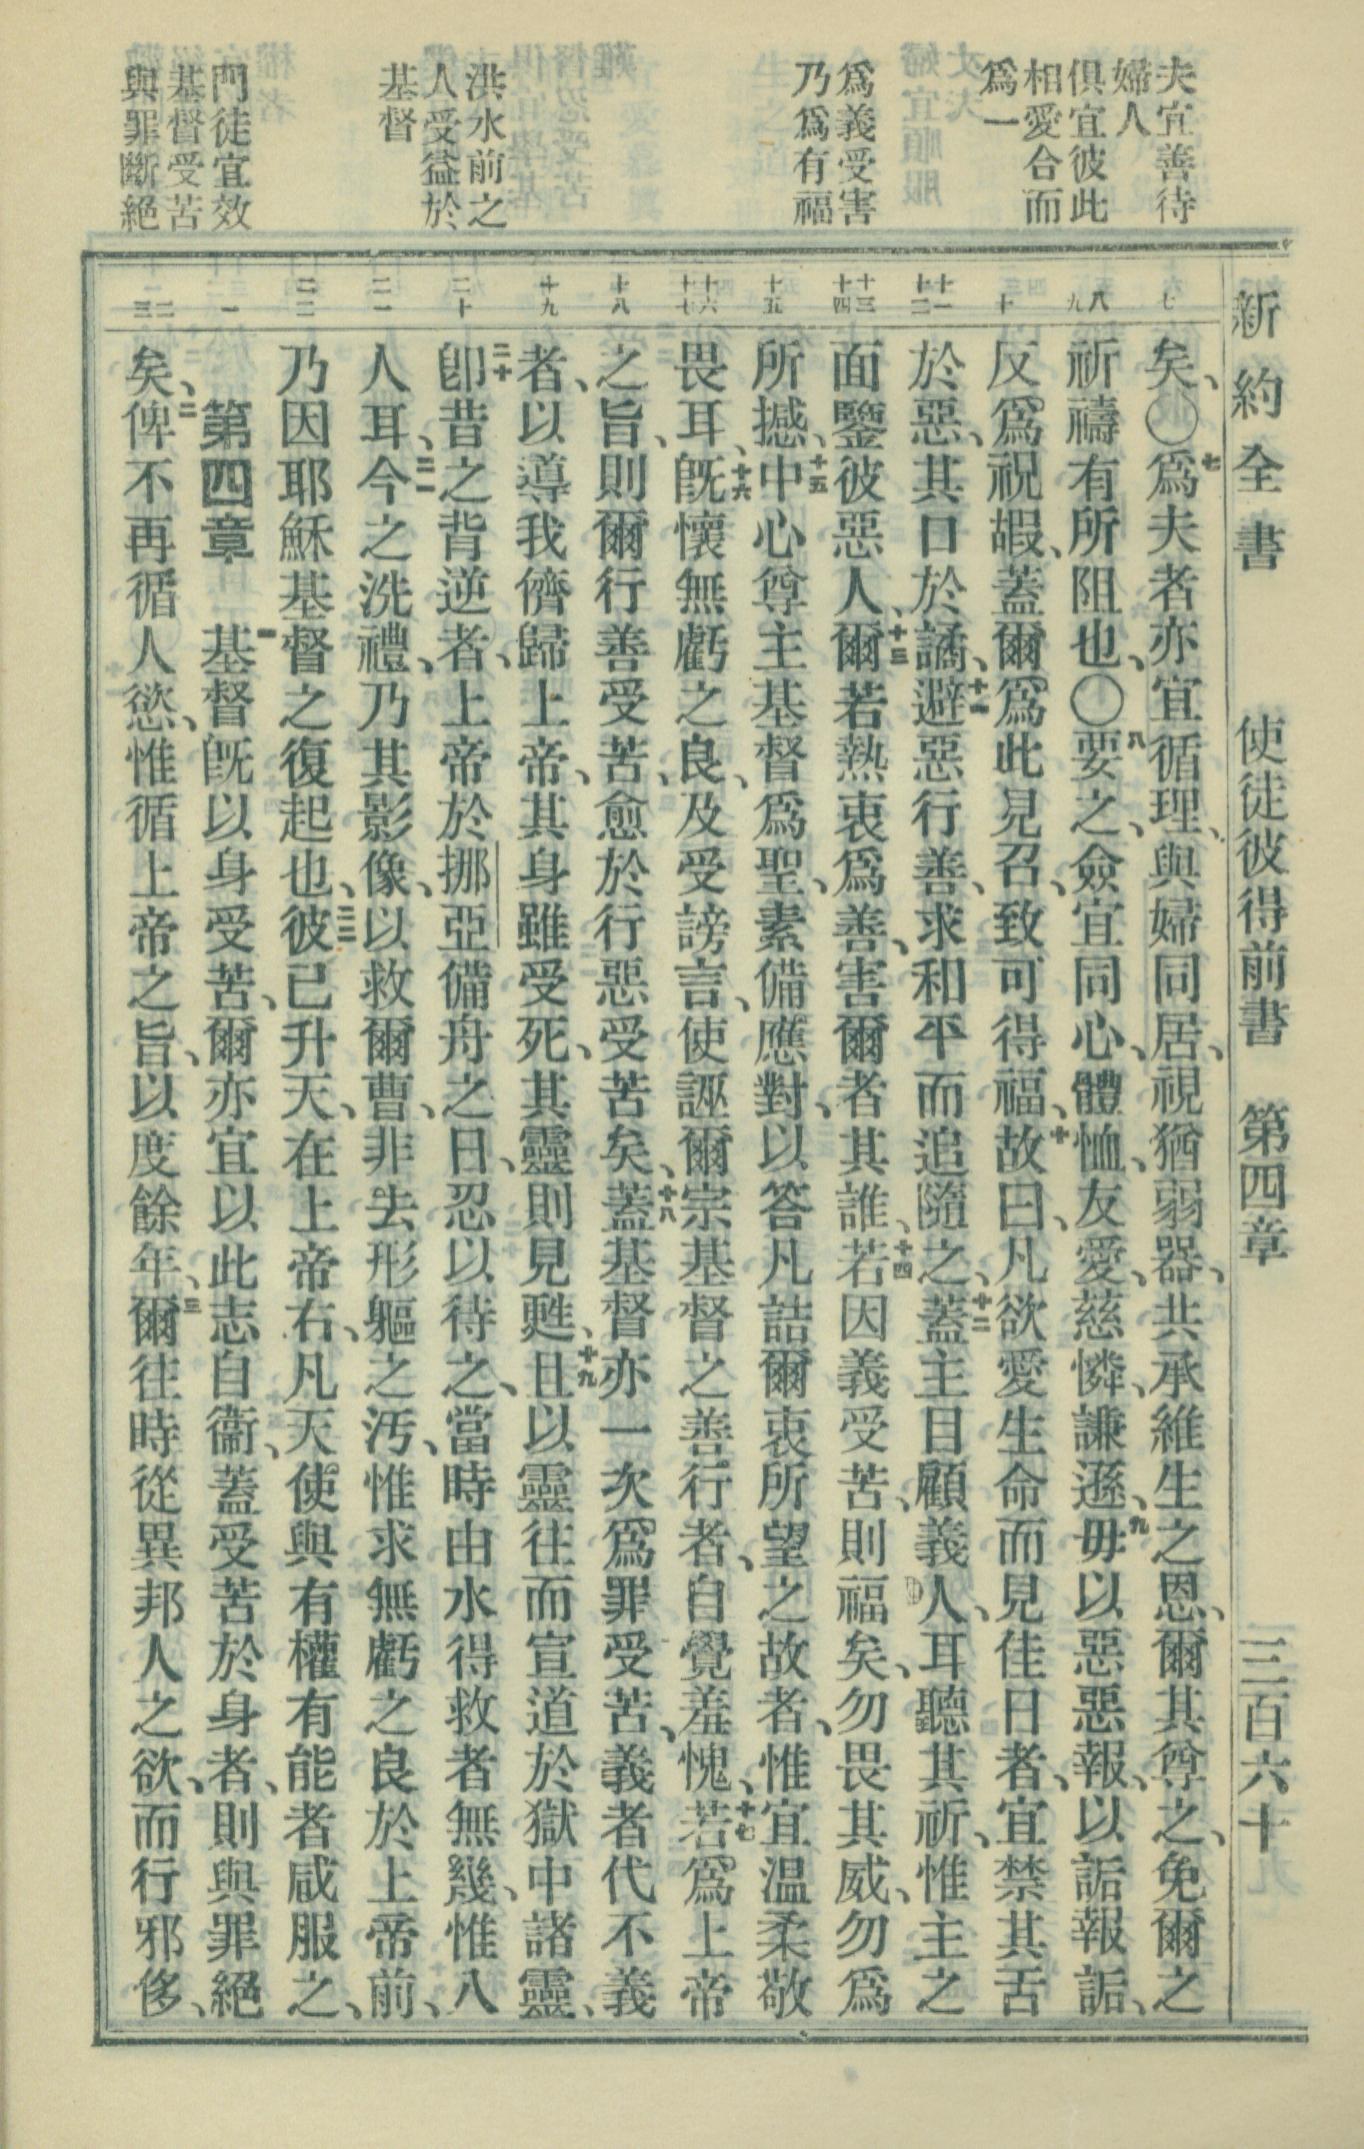 新約全書　使徒彼得前書　第四章　三百六十
夫宜善待
婦人
俱宜彼此
相愛合而
爲一
爲義受害
乃爲有福
洪水前之
人受益於
基督
門徒宜效
基督受苦
與罪斷絕
七
八
九
十
十一
十二
十三
十四
十五
十六
十七
十八
十九
二十
二一
二二
一
二
三
矣、〇七爲夫者亦宜循理、與婦同居、視猶弱器、共承維生之恩、爾其尊之、免爾之
祈禱有所阻也、〇八要之、僉宜同心、體恤、友愛、慈憐、謙遜、九毋以惡惡報、以詬報詬、
反爲祝嘏、蓋爾爲此見召、致可得福、十故曰、凡欲愛生命而見佳日者、宜禁其舌
於惡、其口於譎、十一避惡行善、求和平而追隨之、十二蓋主目顧義人、耳聽其祈、惟主之
面鑒彼惡人、十三爾若熱衷爲善、害爾者其誰、十四若因義受苦、則福矣、勿畏其威、勿爲
所撼、十五中心尊主基督爲聖、素備應對、以答凡詰爾衷所望之故者、惟宜温柔敬
畏耳、十六旣懷無虧之良、及受謗言、使誣爾宗基督之善行者、自覺羞愧、十七若爲上帝
之旨、則爾行善受苦、愈於行惡受苦矣、十八蓋基督亦一次爲罪受苦、義者代不義
者、以導我儕歸上帝、其身雖受死、其靈則見甦、十九且以靈往而宣道於獄中諸靈、
二十卽昔之背逆者、上帝於挪亞備舟之日、忍以待之、當時由水得救者無幾、惟八
人耳、二一今之洗禮、乃其影像、以救爾曹、非去形軀之汚、惟求無虧之良於上帝前、
乃因耶穌基督之復起也、二二彼已升天、在上帝右、凡天使與有權有能者咸服之、
第四章　一基督旣以身受苦、爾亦宜以此志自衞、蓋受苦於身者、則與罪絕
矣、二俾不再循人慾、惟循上帝之旨、以度餘年、三爾往時從異邦人之欲、而行邪侈、